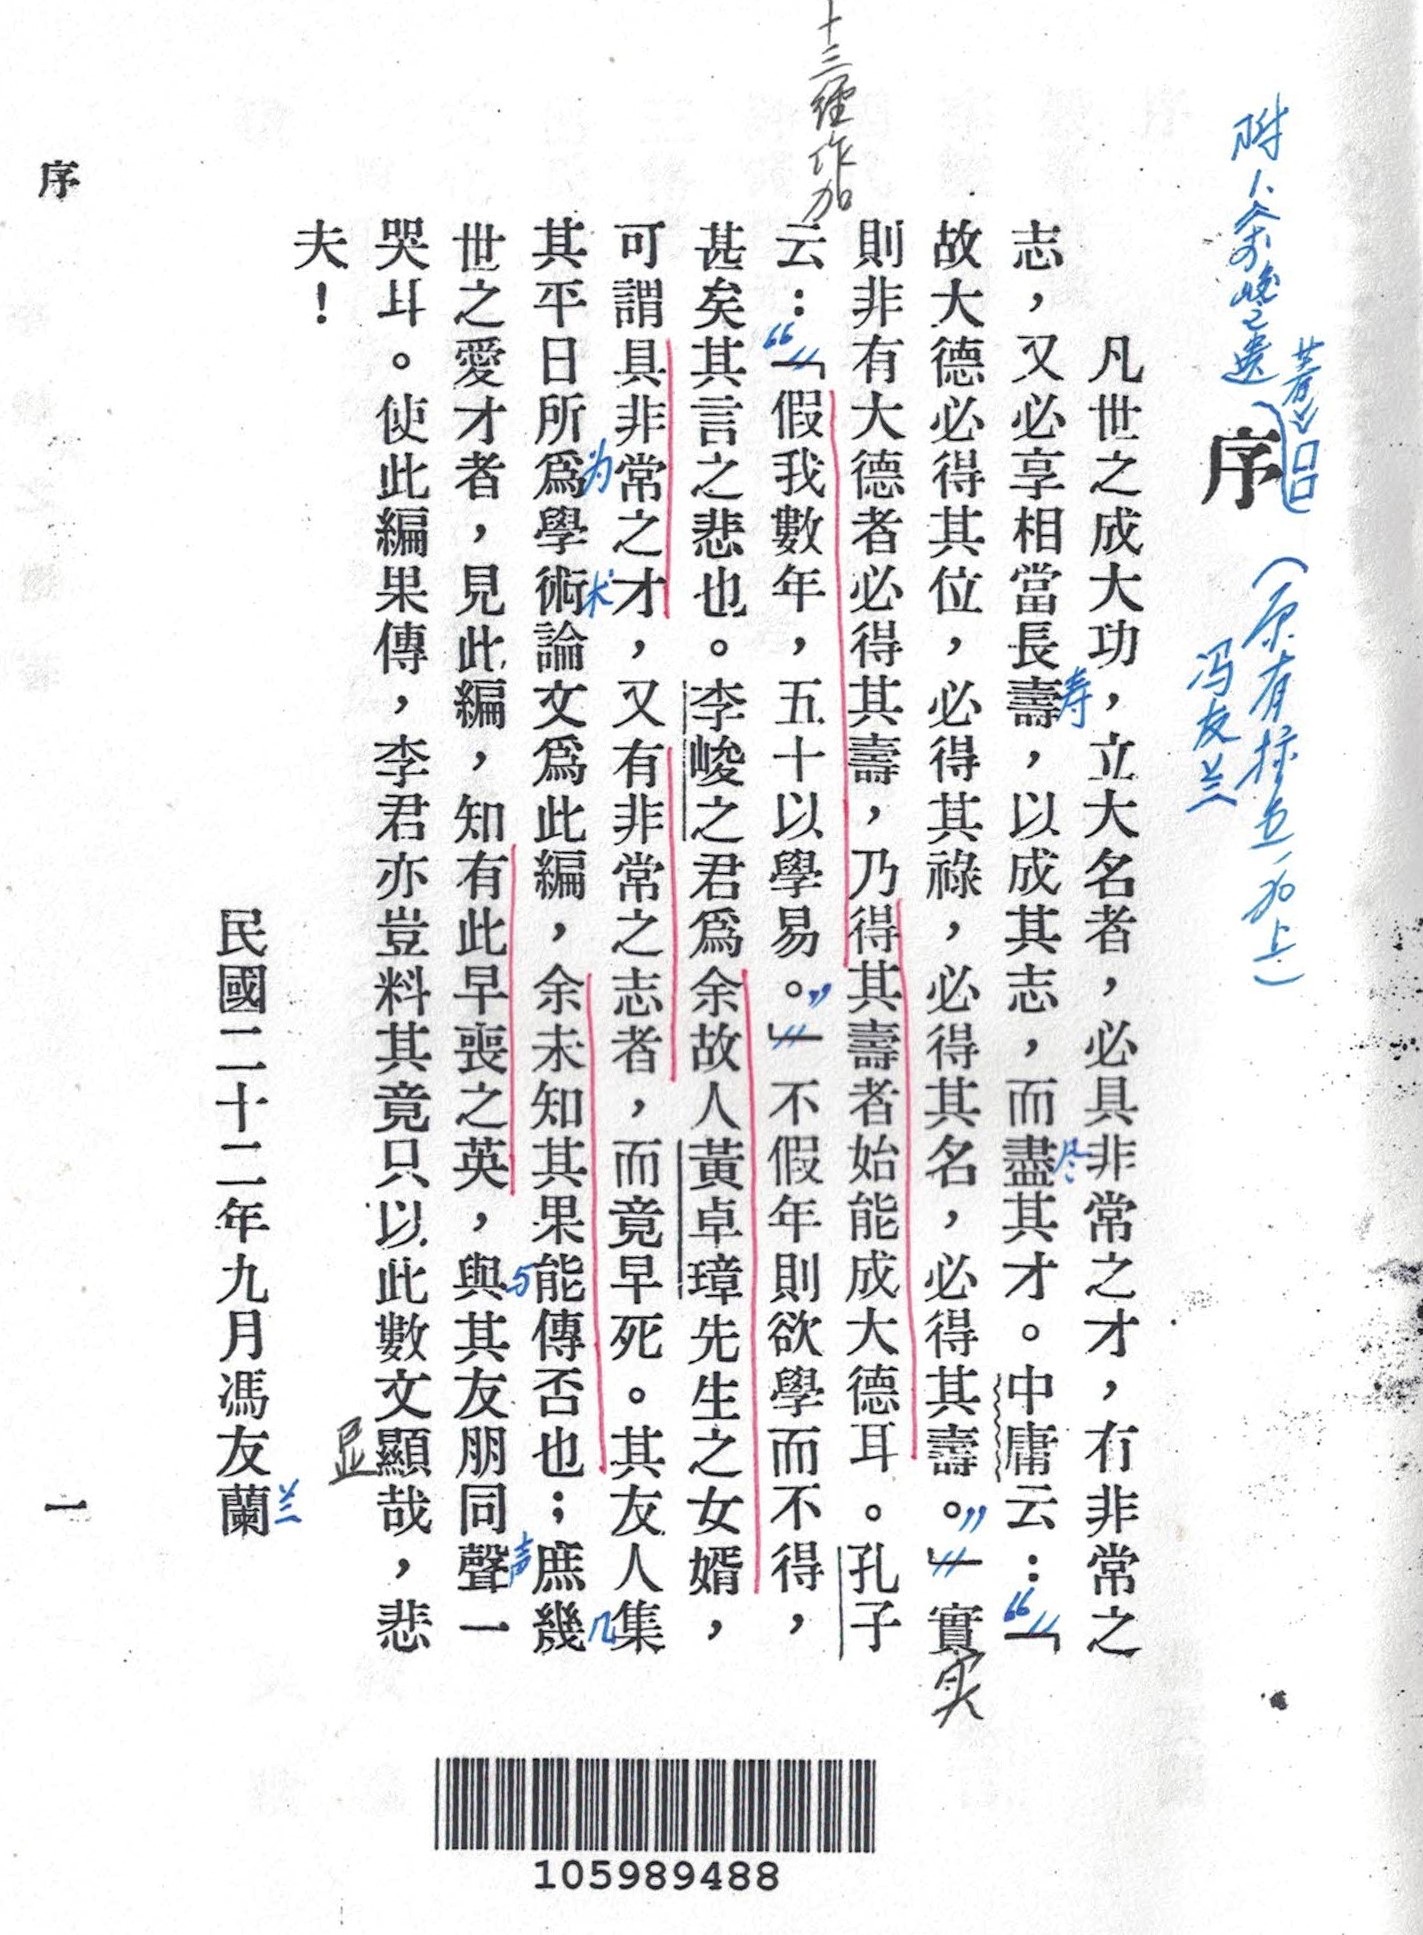 序
凡世之成大功，立大名者，必具非常之才，有非常之
志，又必享相當長壽，以成其志，而盡其才。中庸云：「
故大德必得其位，必得其祿，必得其名，必得其壽。」實
則非有大德者必得其壽，乃得其壽者始能成大德耳。孔子
云：「假我數年，五十以學易。」不假年則欲學而不得，
甚矣其言之悲也。李峻之君爲余故人黃卓璋先生之女婿，
可謂具非常之才，又有非常之志者，而竟早死。其友人集
其平日所爲學術論文爲此編，余未知其果能傳否也；庶幾
世之愛才者，見此編，知有此早喪之英，與其友朋同聲一
哭耳。使此編果傳，李君亦豈料其竟只以此數文顯哉，悲
夫！
民國二十二年九月馮友蘭
序
一
十三經作加
著》
（原有標点，加上）
冯友兰
寿
尽
“
”
实
“
”
为
术
几
与
声
显
兰
105989488